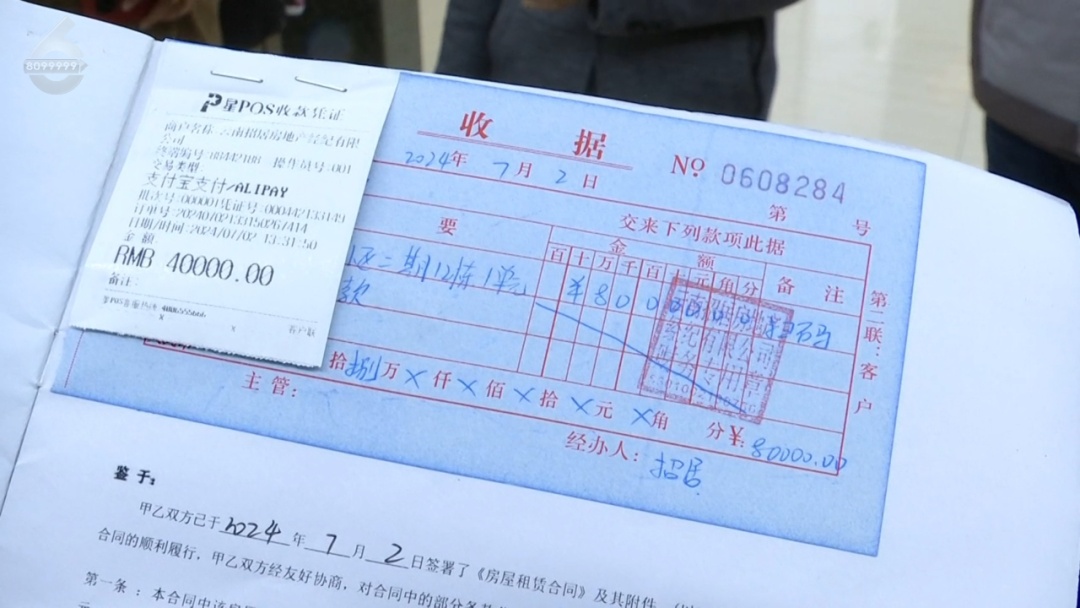 8099999
星POS收款凭证
商户名称:云南招居房地产经纪有限
公司
终端编号:18442188 操作员号:001
交易类型:
支付宝支付/ALIPAY
批次号:000001凭证号:000442133149
日期/时间:2024/07/02 13:31:50
金额:
RMB 40000.00
备注:
收 据
2024年 7月 2日
№ 0608284
第 号
交来下列款项此据
要 金额 备注
百十万千百十元角分
二期12栋1单元 ¥800
款
第二联:客户
拾捌万×仟×佰×拾×元×角 分¥:80000.00
主管: 经办人:招居
鉴于:
甲乙双方已于2024年7月2日签署了《房屋租赁合同》及其附件
合同的顺利履行,甲乙双方经友好协商,对合同中的部分条
第一条:本合同中该房